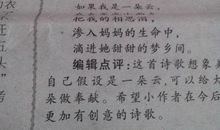 如果我是一朵云,
把我的相思泪,
渗入妈妈的生命中,
淌进她甜甜的梦乡间。
编辑点评:这首诗歌想象美
自己假设是一朵云,可以给大
朵做奉献。希望小作者在今后
更加有创意的诗歌。
五
头
考